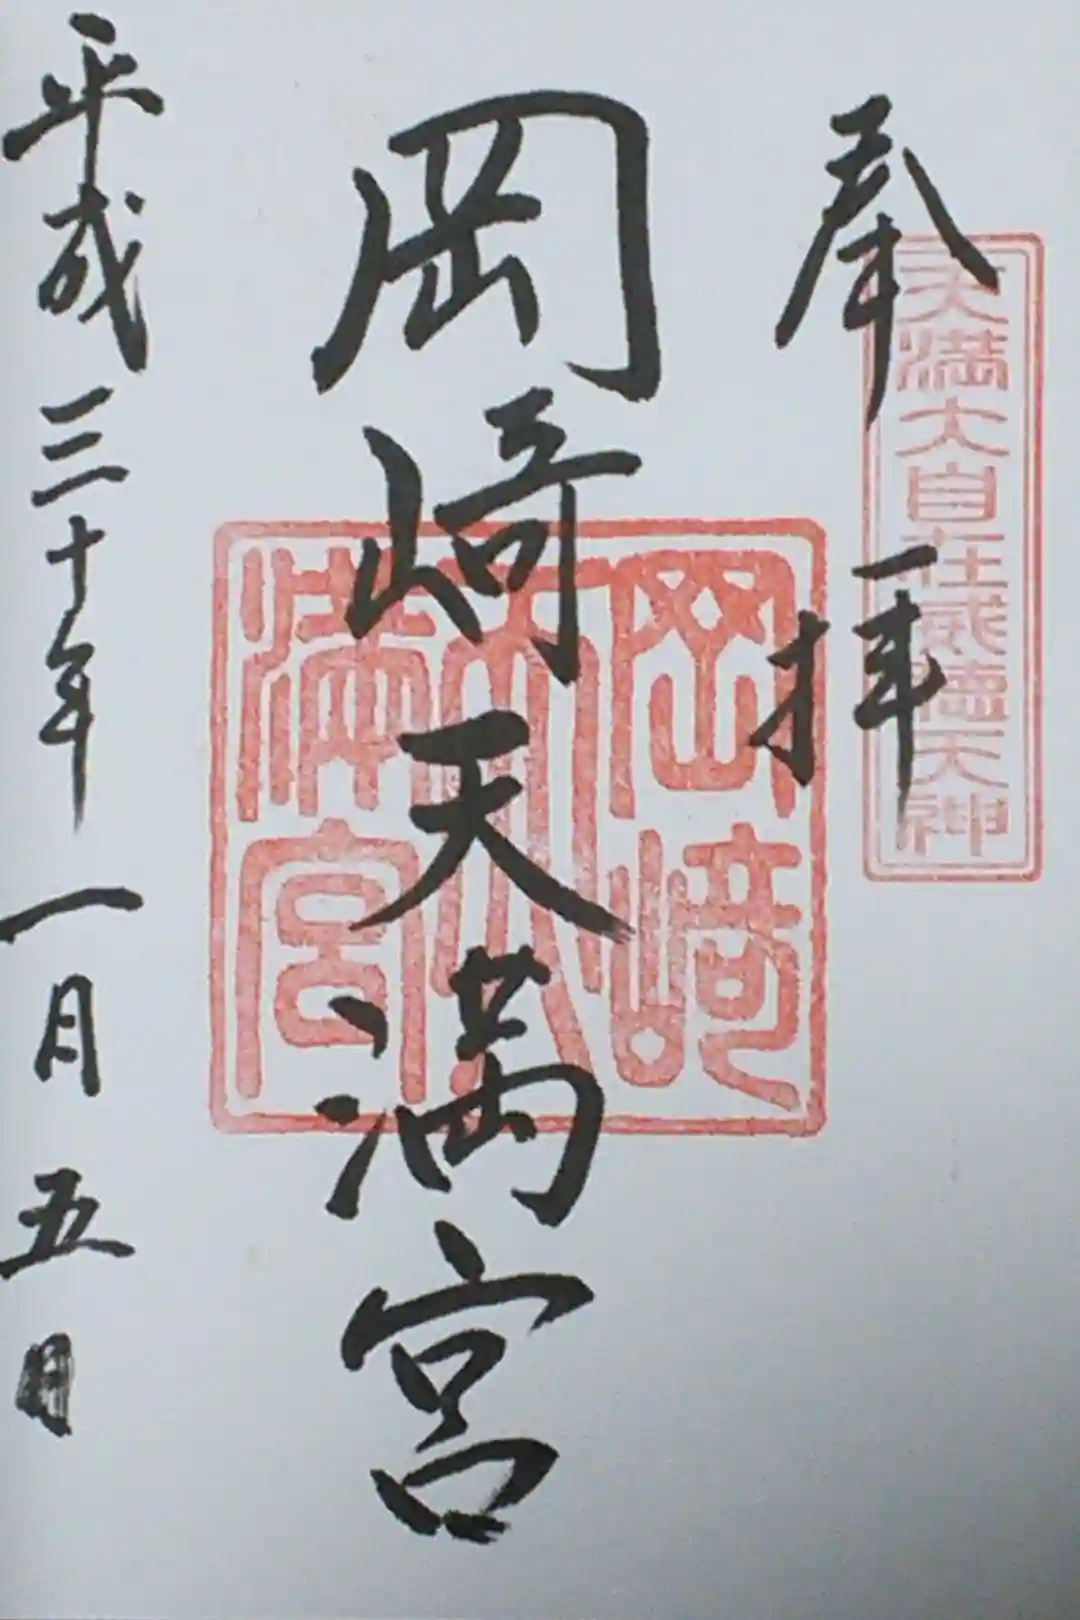 奉拝
天満大自在威徳天神
岡崎天満宮
岡﨑天満宮
平成三十年一月五日